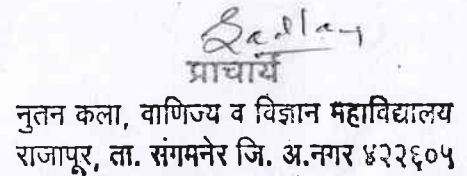 प्राचार्य
नुतन कला, वाणिज्य व विज्ञान महाविद्यालय
राजापूर, ता. संगमनेर जि. अ.नगर ४२२६०५